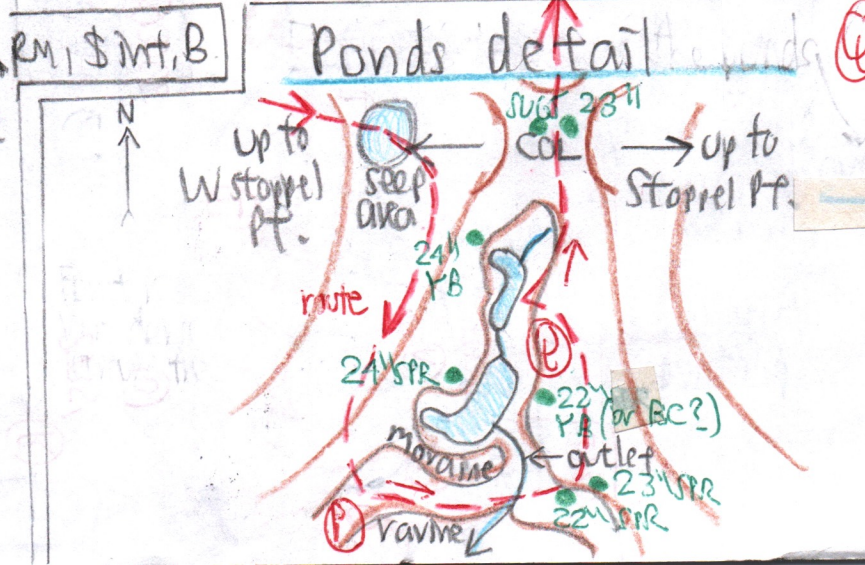 RM, $ int, B
Ponds detail
N
SUGS 23"
COL
up to
W Stoppel
Pt.
seep
area
up to
Stoppel Pt.
24"
YB
route
P
24" SPR
22"
YB (or BC?)
moraine
outlet
23" SPR
22" SPR
P
ravine